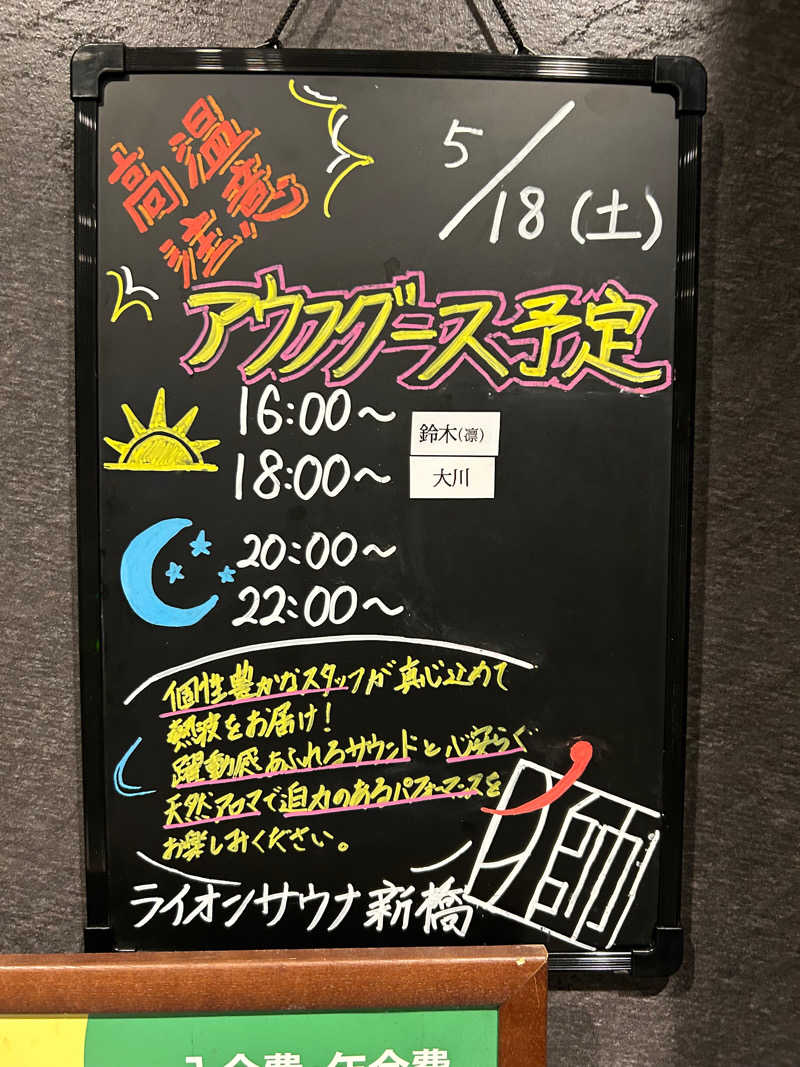 高温
注意
5/18(土)
アウフグース予定
16:00～ 鈴木(凛)
18:00～ 大川
20:00～
22:00～
個性豊かなスタッフが真心込めて
熱波をお届け！
躍動感あふれるサウンドと心安らぐ
天然アロマで迫力のあるパフォーマンスを
お楽しみください。
師
ライオンサウナ新橋
入会費 年会費